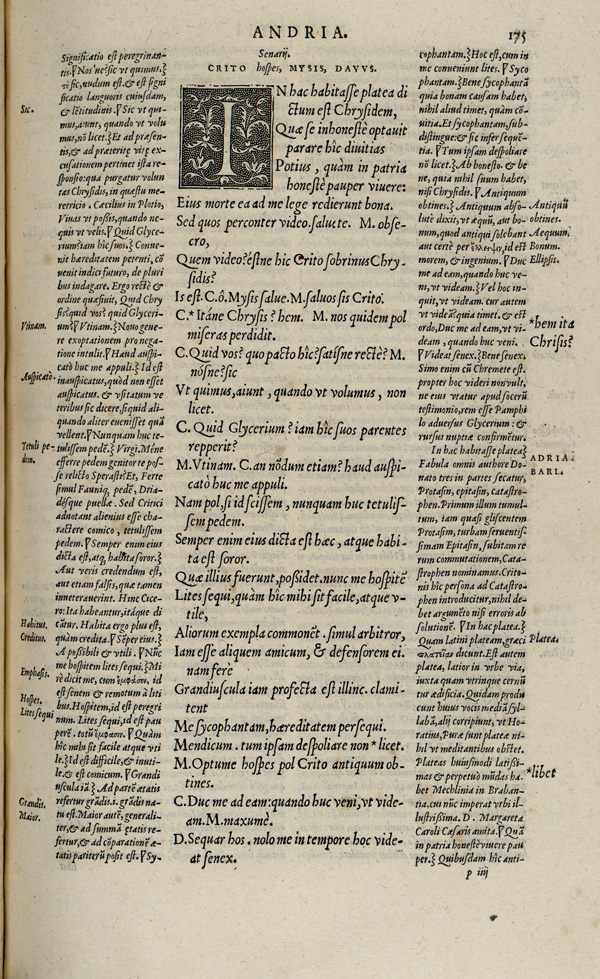 ANDRIA.
175
Senarij.
CRITO hospes, MYSIS, DAVVS.
IN hac habitasse platea di
ctum est Chrysidem,
Quæ se inhonestè optauit
parare hîc diuitias
Potius, quàm in patria
honestè pauper viuere:
Eius morte ea ad me lege redierunt bona.
Sed quos perconter video. saluete. M. obse-
cro,
Quem video? éstne hic Crito sobrinus Chry-
sidis?
Is est. C. ô, Mysis salue. M. saluos sis Crito.
C.* Itáne Chrysis? hem. M. nos quidem pol
miseras perdidit.
C. Quid vos? quo pacto hîc? satísne rectè? M.
nósne? sic
Vt quimus, aiunt, quando vt volumus, non
licet.
C. Quid Glycerium? iam hîc suos parentes
repperit?
M. Vtinam. C. an nōdum etiam? haud auspi-
catò huc me appuli.
Nam pol, si id scissem, nunquam huc tetulis-
sem pedem.
Semper enim eius dicta est hæc, atque habi-
ta est soror.
Quæ illius fuerunt, possidet. nunc me hospitē
Lites sequi, quàm hîc mihi sit facile, atque v-
tile,
Aliorum exempla commonēt. simul arbitror,
Iam esse aliquem amicum, & defensorem ei.
nam fere
Grandiuscula iam profecta est illinc. clami-
tent
Me sycophantam, hæreditatem persequi.
Mendicum. tum ipsam despoliare non *licet.
M. Optume hospes pol Crito antiquum ob-
tines.
C. Duc me ad eam: quando huc veni, vt vide-
am. M. maxumè.
D. Sequar hos. nolo me in tempore hoc vide-
at senex.
Sic.
Vtinam.
Auspicatò.
Tetuli pe-
dem.
Habitus.
Creditus.
Emphasis.
Hospes.
Lites sequi
Grandis.
Maior.
Significatio est peregrinan-
tis. ¶Nos'ne? sic vt quimus.}
τὸ sic, nudum est. & est signi
ficatio languoris cuiusdam,
& lētitudinis. ¶Sic vt qui-
mus, aiunt, quando vt volu
mus, nō licet.} Et ad præsen-
tis, & ad præteritę vitę ex-
cusationem pertinet ista re-
sponsio: qua purgatur volun
tas Chrysidis, in quæstu me-
retricio. Cæcilius in Plotio,
Viuas vt possis, quando ne-
quis vt velis. ¶Quid Glyce-
rium? iam hîc suos.} Conue-
nit hæreditatem petenti, cō
uenit indici futuro, de pluri
bus indagare. Ergo rectè &
ordine quæsiuit, Quid Chry
sis? quid vos? quid Glyceri-
um? ¶Vtinam.} Nouo gene-
re exoptationem pro nega-
tione intulit. ¶Haud auspi-
catò huc me appuli.} Id est
inauspicatus, quòd non esset
auspicatus. & vsitatum ve
teribus sic dicere, si quid ali-
quando aliter euenisset quā
vellent. ¶Nunquam huc te-
tulissem pedē.} Virgi. Méne
efferre pedem genitor te pos-
se relicto Sperasti? Et, Ferte
simul Faunique pedē, Dria-
désque puellæ. Sed Critici
adnotant alienius esse cha-
ractere comico, tetulissem
pedem. ¶Semper enim eius
dicta est, atq, habita soror.}
Aut veris credendum est,
aut etiam falsis, quæ tamen
inueterauerint. Hinc Cice-
ro: Ita habeantur, itáque di
cātur. Habita ergo plus est,
quàm credita. ¶Sēper eius.}
A possibili & vtili. ¶Nūc
me hospitem lites sequi.} Mi
rè dicit me, cum ἐμφάσει, id
est senem & remotum à liti
bus. Hospitem, id est peregri
num. Lites sequi, id est pau
perē. τοῦτο ἔμφασις. ¶Quàm
hîc mihi sit facile atque vti
le.} Id est difficile, & inuti-
le. & est comicum. ¶Grandi
uscula iā.} Ad partē ætatis
refertur grādis. i. grādis na-
tu est. Maior autē, generali-
ter, & ad summā ętatis re-
fertur, & ad cōparationē æ-
tatis pariterū posit est. ¶Sy-
cophantam.} Hoc est, cum in
me conueniunt lites. ¶Syco
phantam.} Bene sycophantā
quia bonam causam habet,
nihil aliud timet, quàm cō-
uitia. Et sycophantam, sub-
distingue: & sic inferséquē-
tia. ¶Tum ipsam despoliare
nō licet.} Ab honesto. & be
ne, quia nihil suum habet,
nisi Chrysidis. ¶Antiquum
obtines.} Antiquum abso-
lutè dixit, vt æquū, aut bo-
num, quod antiqui solebant
aut certè per ἔλλειψιν, id est
morem, & ingenium. ¶Duc
me ad eam, quando huc ve-
ni, vt videam.} Vel hoc in-
quit, vt videam. cur autem
vt videā? quia timet. & est
ordo, Duc me ad eam, vt vi-
deam, quando huc veni.
¶Videat senex.} Bene senex.
Simo enim cū Chremete est.
propter hoc videri non vult,
ne eius vtatur apud socerū
testimonio, rem esse Pamphi
lo aduersus Glycerium: &
rursus nuptiæ confirmētur.
In hac habitasse platea.}
Fabula omnis authore Do-
nato tres in partes secatur,
Protasin, epitasin, Catastro-
phen. Primum illum tumul-
tum, iam quasi gliscentem
Protasim, turbam feruentis-
simam Epitasin, subitam re
rum commutationem, Cata-
strophen nominamus. Crito-
nis hîc persona ad Catastro-
phen introducitur, nihil de-
bet argumēto nisi erroris ab
solutionē. ¶In hac platea.}
Quam latini plateam, græci
πλατεῖαν dicunt. Est autem
platea, latior in vrbe via,
iuxta quam vtrinque cernū
tur ædificia. Quidam produ
cunt huius vocis mediā syl-
labā, alij corripiunt, vt Ho-
ratius, Puræ sunt plateæ ni-
hil vt meditantibus obstet.
Plateas huiusmodi latissi-
mas & perpetuò mūdas ha-
bet Mechlinia in Braban-
tia, cui nūc imperat vrbi il-
lustrissima. D. Margareta
Caroli Cæsaris amita. ¶Quā
in patria honestè viuere pau
per.} Quibusdam hîc anti-
Antiquū
obtines.
Aequum.
Bonum.
Ellipsis.
*hem ita
Chrisis?
ADRIA.
BARL.
Platea.
*libet
p iiij